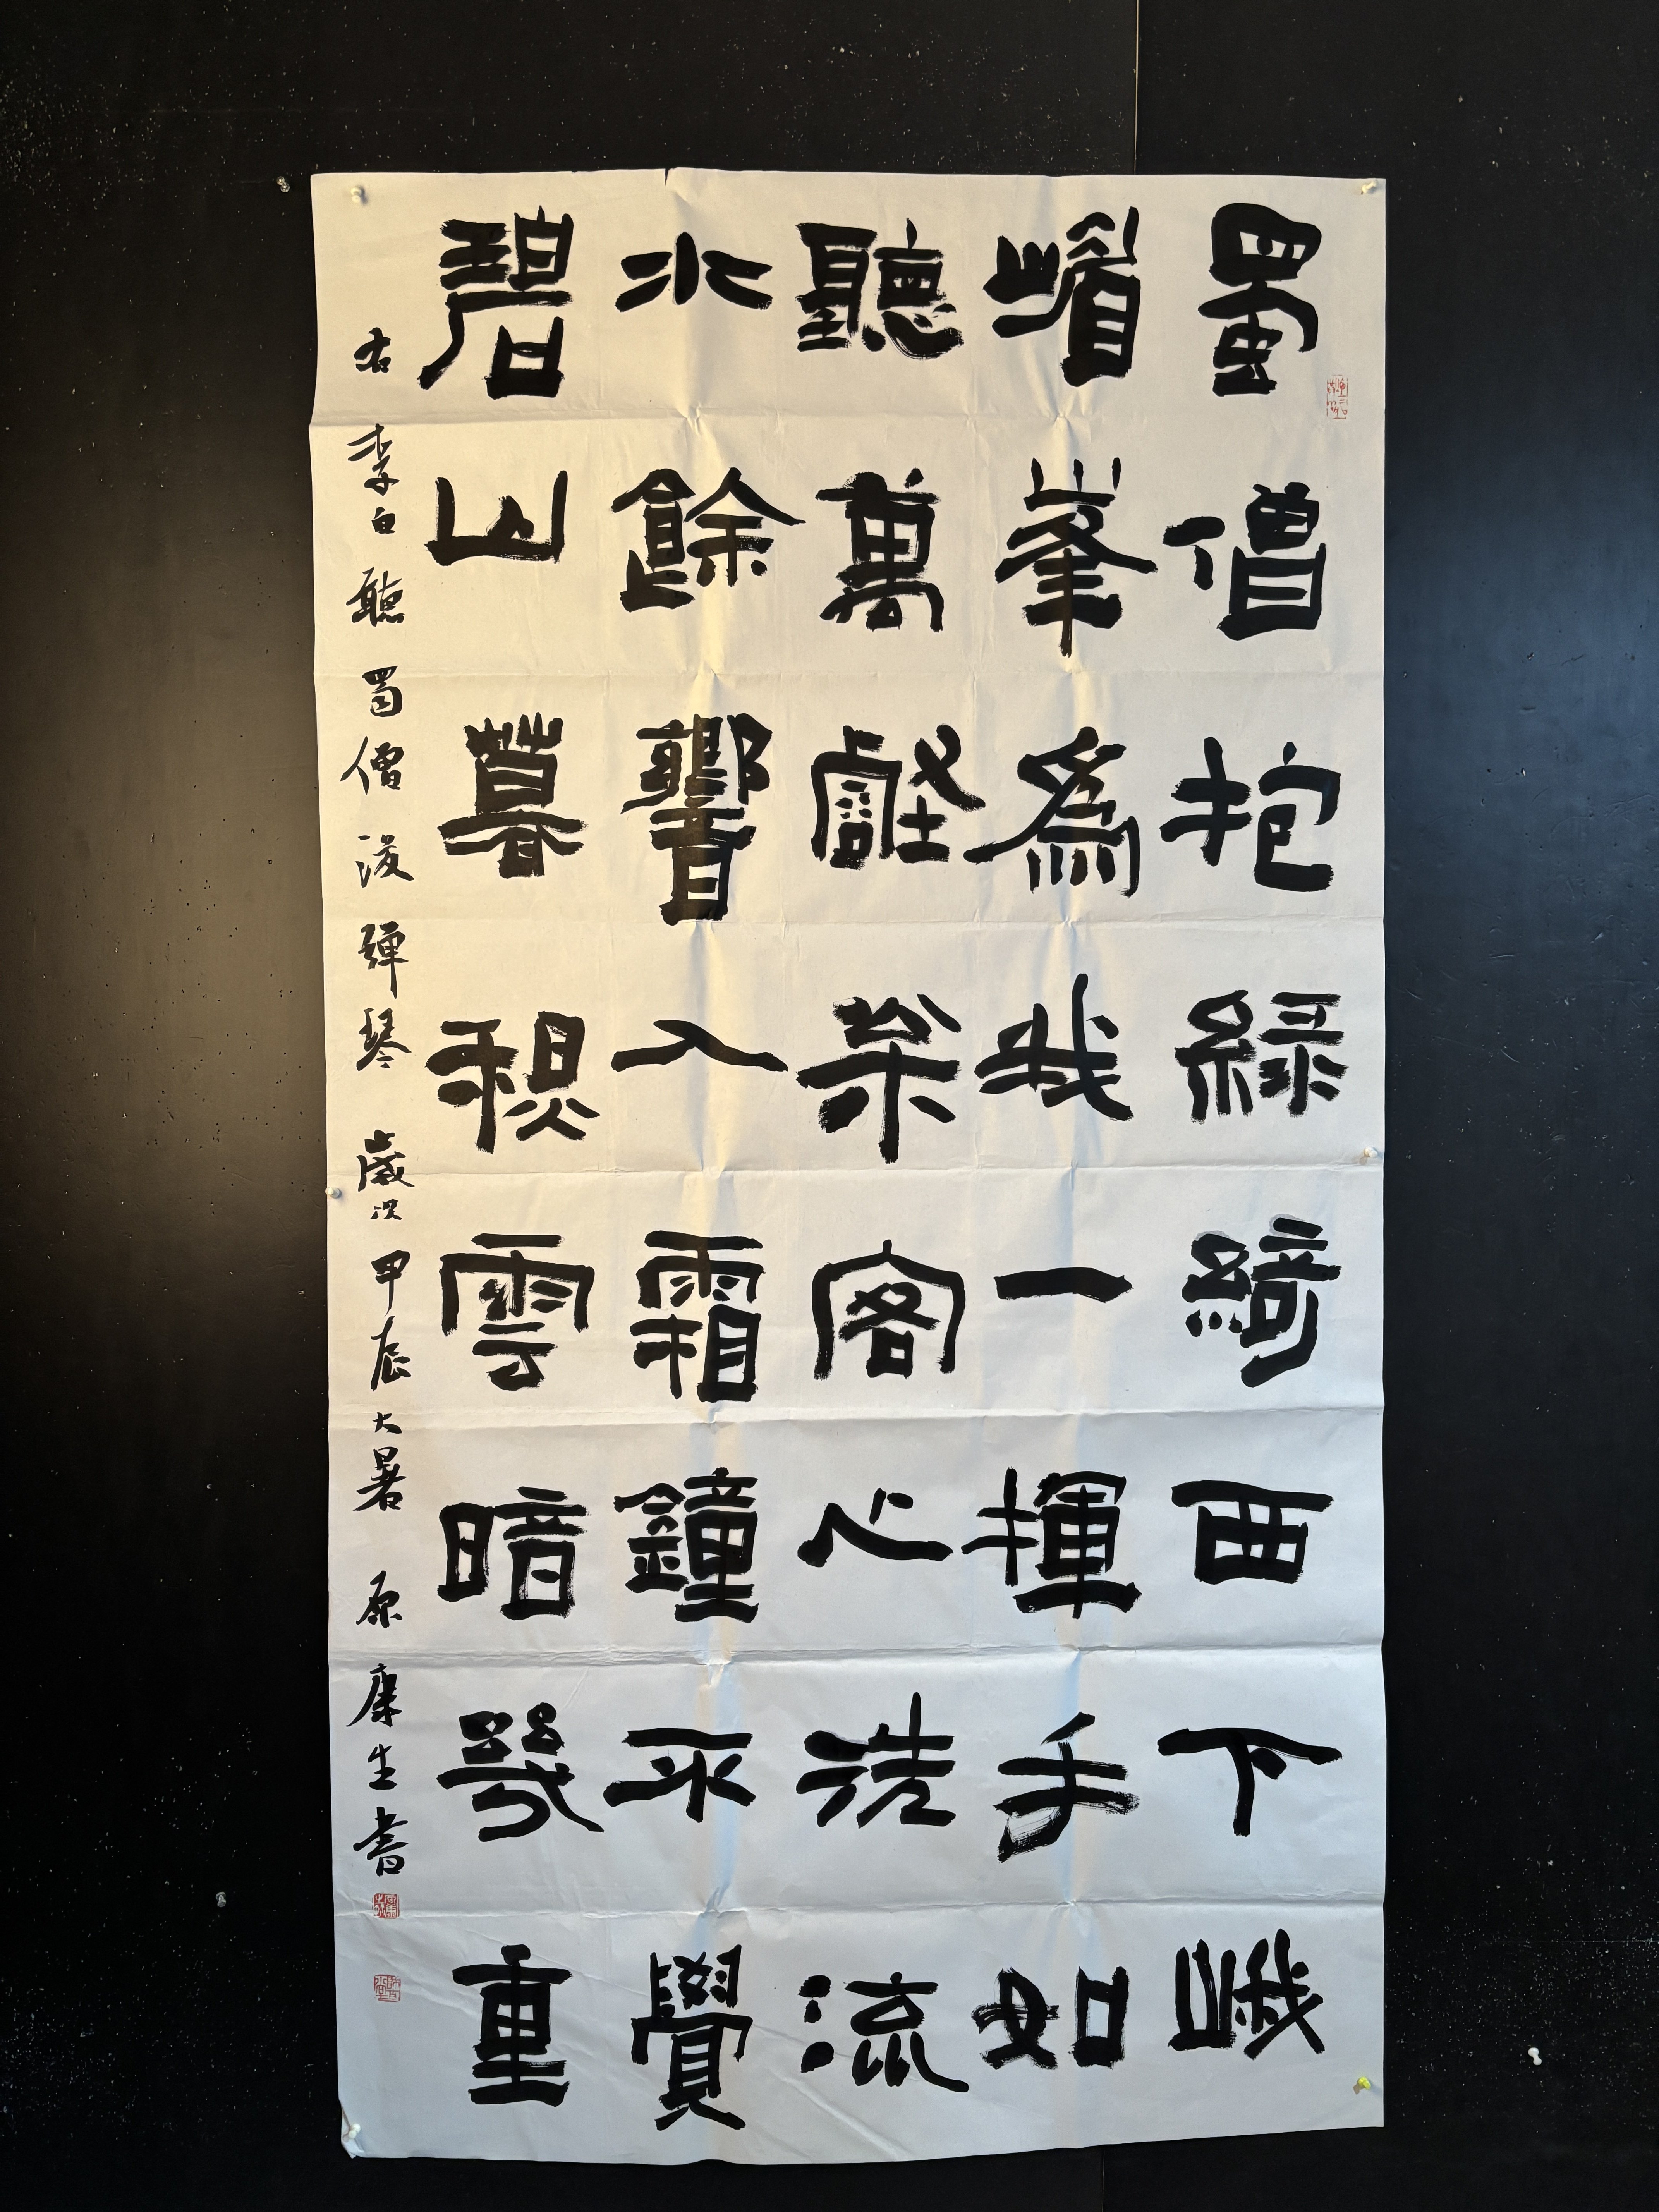 蜀僧抱綠綺西下峨
嵋峯爲我一揮手如
聽萬壑枀客心洗流
水餘響入霜鐘不覺
碧山暮秋雲暗幾重
右李白聽蜀僧浚彈琴歲次甲辰大暑原康生書